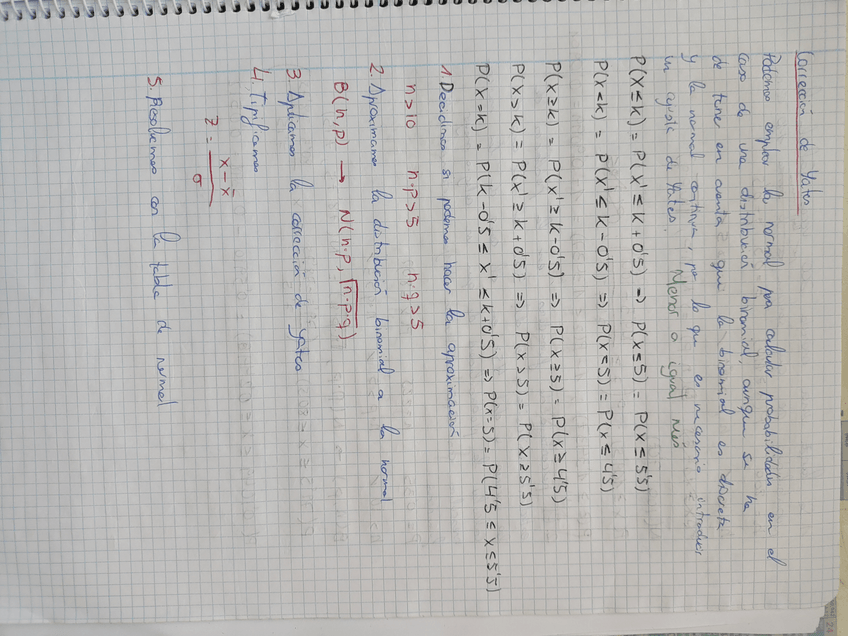 Corrección de Yates
Podemos emplear la normal para calcular probabilidades en el
caso de una distribución binomial, aunque se ha
de tener en cuenta que la binomial es discreta
y la normal continua, por lo que es necesario introducir
un ajuste de Yates. Menor o igual más
P(x≤k) = P(x'≤k+0'5) => P(x≤5) = P(x≤5'5)
P(x<k) = P(x'≤k-0'5) => P(x<5) = P(x≤4'5)
P(x≥k) = P(x'≥k-0'5) => P(x≥5) = P(x≥4'5)
P(x>k) = P(x'≥k+0'5) => P(x>5) = P(x≥5'5)
P(x=k) = P(k-0'5≤x'≤k+0'5) => P(x=5) = P(4'5≤x≤5'5)
1. Decidimos si podemos hacer la aproximación
n>10 n·p>5 n·q>5
2. Aproximamos la distribución binomial a la normal
B(n,p) → N(n·p, √n·p·q)
3. Aplicamos la corrección de Yates
4. Tipificamos
z = (x-x̄)/σ
5. Resolvemos con la tabla de normal